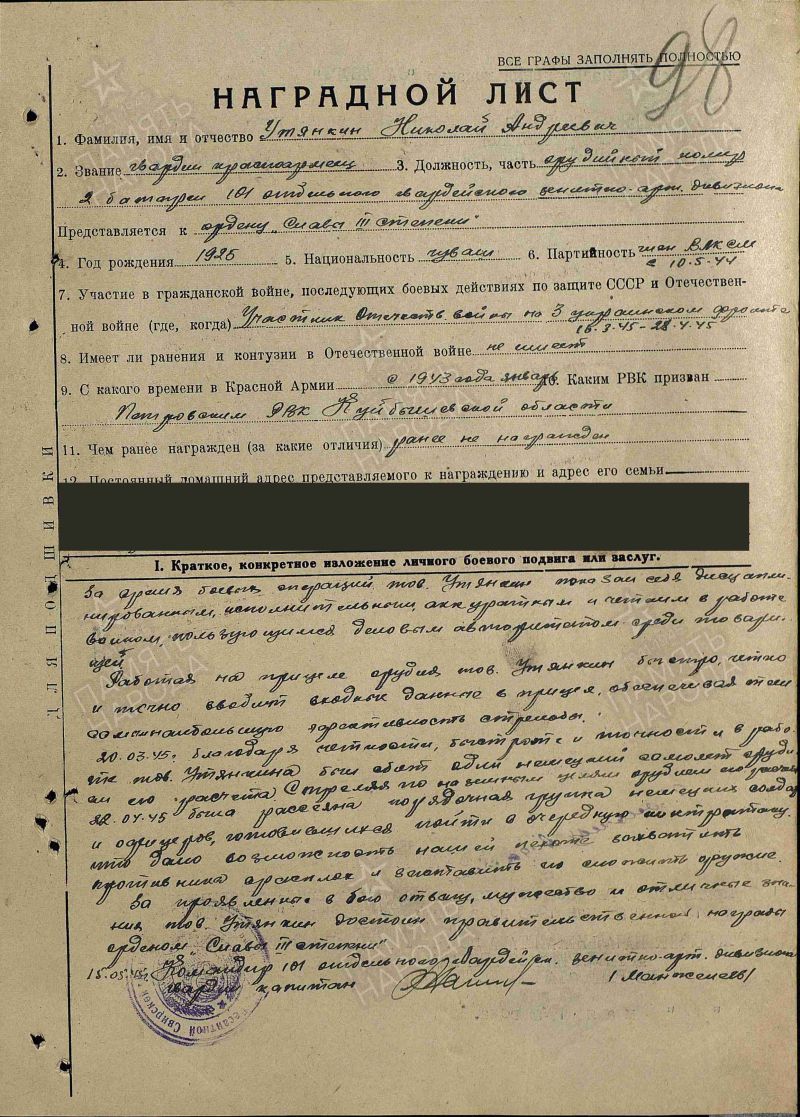 98
ВСЕ ГРАФЫ ЗАПОЛНЯТЬ ПОЛНОСТЬЮ
НАГРАДНОЙ ЛИСТ
1. Фамилия, имя и отчество Утянкин Николай Андреевич
2. Звание гвардии красноармеец 3. Должность, часть орудийный номер
2 батареи 101 отдельного гвардейского зенитно-арт. дивизиона
Представляется к ордену „Слава III степени"
4. Год рождения 1925 5. Национальность чуваш 6. Партийность член ВЛКСМ
с 10.5.44
7. Участие в гражданской войне, последующих боевых действиях по защите СССР и Отечествен-
ной войне (где, когда) Участник Отечеств войны на 3 украинском фронте
16.3.45-28.4.45
8. Имеет ли ранения и контузии в Отечественной войне не имеет
9. С какого времени в Красной Армии с 1943 года январь 10. Каким РВК призван
Петровским РВК Куйбышевской области
11. Чем ранее награжден (за какие отличия) ранее не награжден
12. Постоянный домашний адрес представляемого к награждению и адрес его семьи
I. Краткое, конкретное изложение личного боевого подвига или заслуг.
За время боевых операций тов. Утянкин показал себя дисципли-
нированным, исполнительным, аккуратным и четким в работе
воином, пользующимся деловым авторитетом среди товари-
щей
Работая на прицеле орудия тов. Утянкин быстро, четко
и точно вводит входные данные в прицел, обеспечивая тем
самым наибольшую эффективность стрельбы.
20.03.45г. благодаря четкости, быстроте и точности в рабо-
те тов. Утянкина был сбит один немецкий самолет оруди-
ем его расчета. Стреляя по наземным целям орудием его расчета
22.04.45 была рассеяна порядочная группа немецких солдат
и офицеров, готовившихся пойти в очередную контратаку,
что дало возможность нашей пехоте захватить
противника врасплох и заставить его сложить оружие.
За проявленные в бою отвагу, мужество и отличные зна-
ния тов. Утянкин достоин правительственной награды
орденом „Слава III степени"
15.05.45г. Командир 101 отдельного гвардейск. зенитно-арт. дивизиона
гвардии капитан (
ДЛЯ ПОДШИВКИ
Десантной Свирской
ПАМЯТЬ НАРОДА